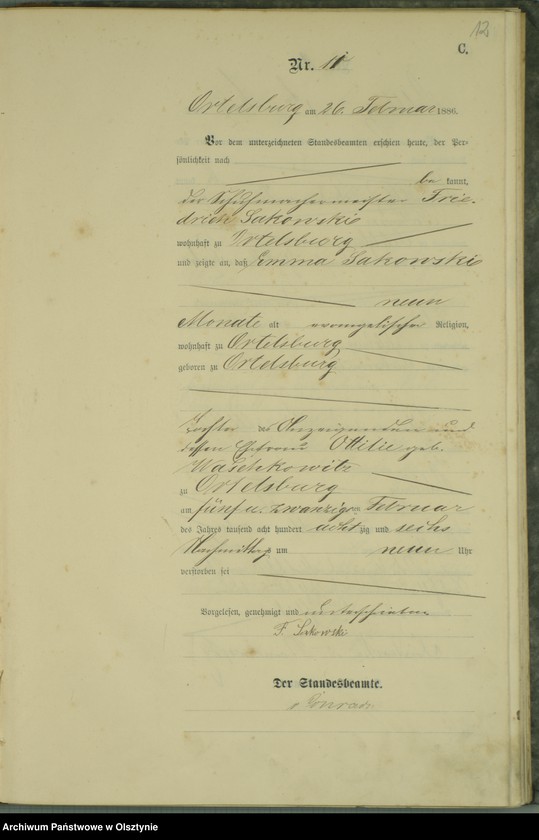 12
C.
Nr. 11
Ortelsburg am 26. Februar 1886.
Vor dem unterzeichneten Standesbeamten erschien heute, der Per-
sönlichkeit nach
be kannt,
der Schuhmachermeister Frie-
drich Sakowski
wohnhaft zu Ortelsburg
und zeigte an, daß Emma Sakowski
neun
Monate alt evangelischer Religion,
wohnhaft zu Ortelsburg
geboren zu Ortelsburg
Tochter des Anzeigenden und
dessen Ehefrau Ottilie geb.
Waschkowitz
zu Ortelsburg
am fünf u. zwanzig ten Februar
des Jahres tausend acht hundert acht zig und sechs
Nachmittags um neun Uhr
verstorben sei
Vorgelesen, genehmigt und unterschrieben
F. Sakowski
Der Standesbeamte.
Conrad
Archiwum Państwowe w Olsztynie